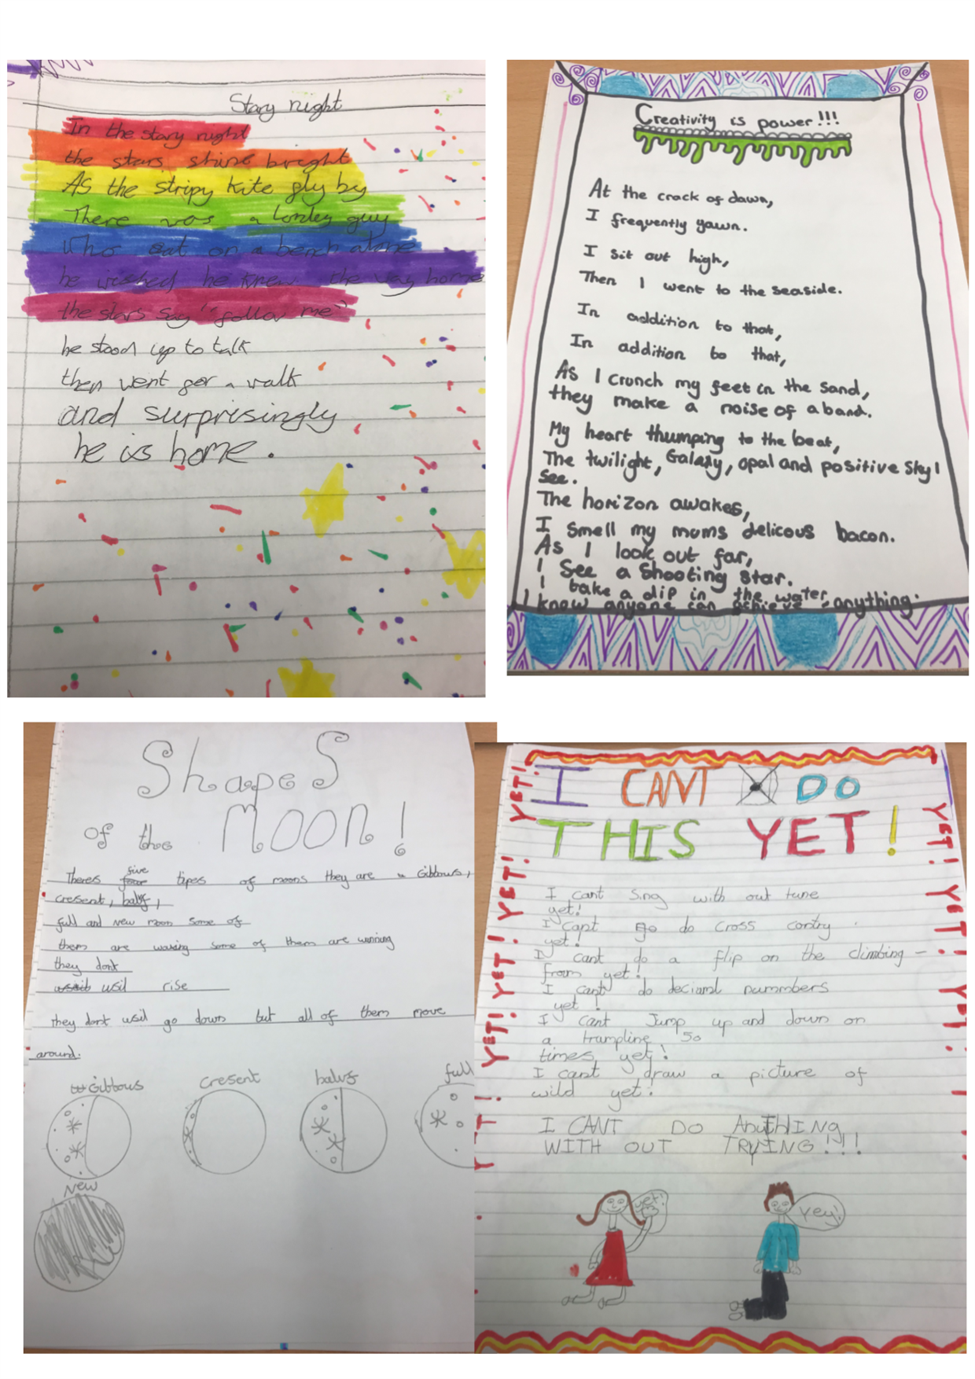 Stary night
In the stary night
the stars shine bright
As the stripy kite fly by
There was a lonley guy
who sat on a bench alone
he wished he knew the way home
the stars say "follow me"
he stood up to talk
then went for a walk
and surprisingly
he is home.
Creativity is power!!!
At the crack of dawn,
I frequently yawn.
I sit out high,
Then I went to the seaside.
In addition to that,
In addition to that,
As I crunch my feet in the sand,
they make a noise of a band.
My heart thumping to the beat,
The twilight, Galaxy, opal and positive sky I
see.
The horizon awakes,
I smell my moms delicous bacon.
As I look out far,
I see a shooting star.
I take a dip in the water
I know anyone can achieve anything.
Shapes
of the Moon!
Theres five tipes of moons they are a Gibbous,
cresent, halvs,
full and new moon some of
them are waxing some of them are wanning
they dont
usil rise
they dont usil go down but all of them move
around.
Gibbous
cresent
halvs
full
New
I CANT DO
THIS YET!
I cant sing with out tune
yet!
I cant go do cross contry
yet!
I cant do a flip on the climbing-
fram yet!
I cant do decimal nummbers
yet!
I cant Jump up and down on
a trampline 50
times yet!
I cant draw a picture of
wild yet!
I CANT DO AnyTHING
WITH OUT TRYING!!!!
yet!
Yey!
YET! YET! YET! YET! YET!
YET! YET! YET! YET!